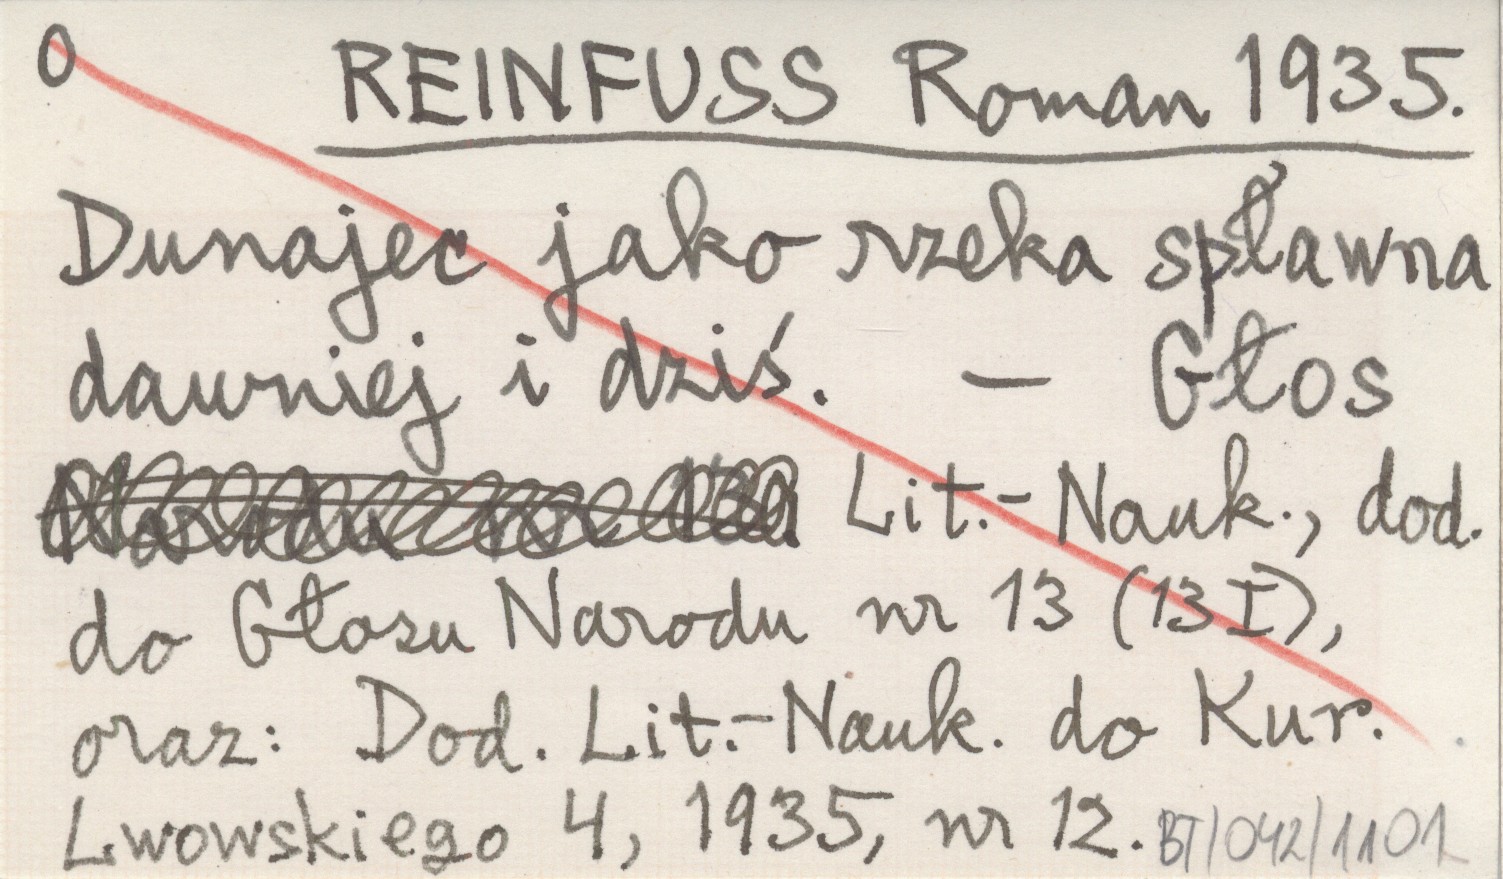 0 REINFUSS Roman 1935.
Dunajec jako rzeka spławna
dawniej i dziś. — Głos
Narodu nr 13a Lit.-Nauk., dod.
do Głosu Narodu nr 13 (13 I),
oraz: Dod. Lit.-Nauk. do Kur.
Lwowskiego 4, 1935, nr 12. BT/042/1101